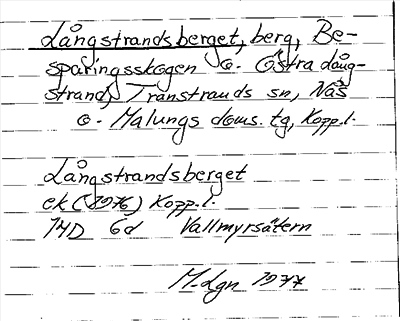 Långstrandsberget, berg, Be-
sparingsskogen o. Östra Lång-
strand, Transtrands sn, Näs
o. Malungs doms. tg, Kopp.l.
Långstrandsberget
ek (1976) Kopp.l.
14D 6d Vallmyrsätern
M-Lgn 1977